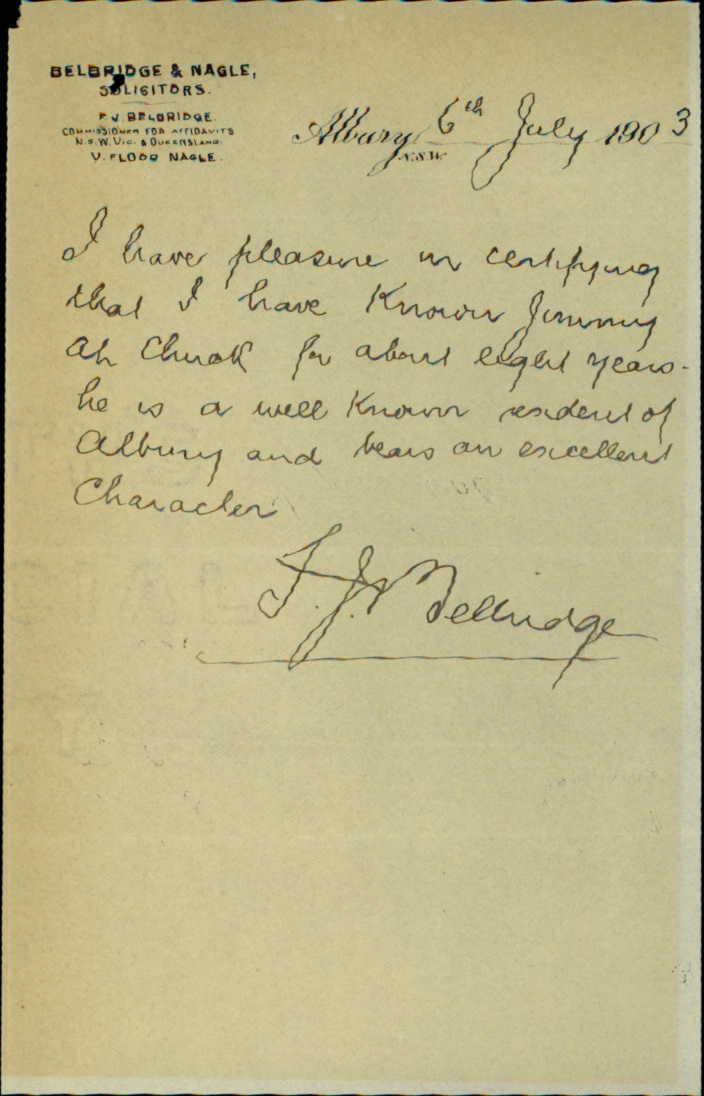 BELBRIDGE & NAGLE,
SOLICITORS.
F J BELBRIDGE.
COMMISSIONER FOR AFFIDAVITS
N.S.W. VIC. & QUEENSLAND.
V. FLOOD NAGLE.
Albury 6th July 1903
N.S.W.
I have pleasure in certifying
that I have Known Jimmy
Ah Chuck for about eight years.
he is a well Known resident of
Albury and bears an excellent
Character
F. J. Belbridge